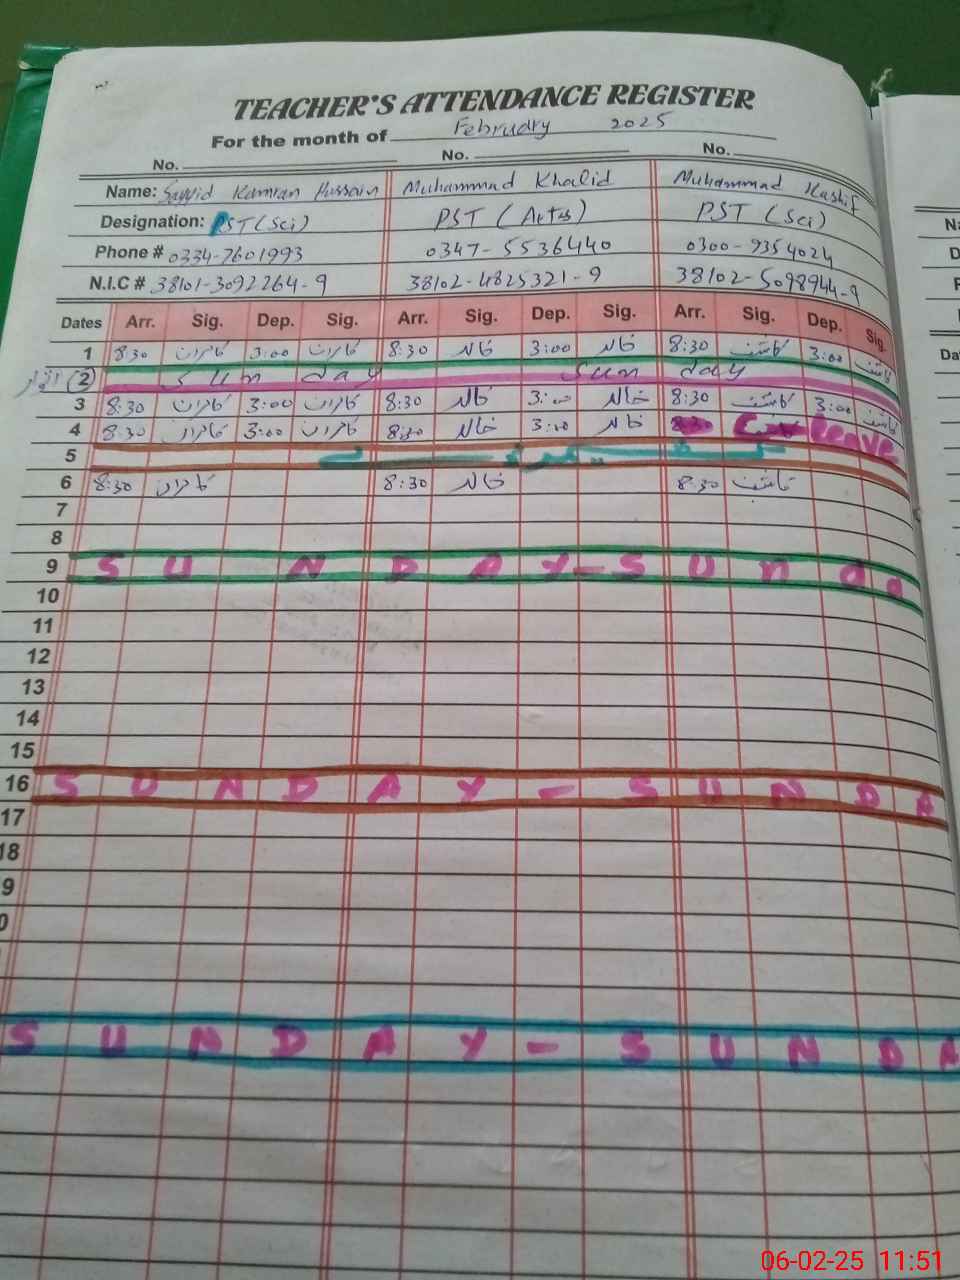 TEACHER'S ATTENDANCE REGISTER
For the month of February 2025
No. No. No.
Name: Sayyid Kamran Hussain Muhammad Khalid Muhammad Kashif
Designation: PST (Sci) PST (Arts) PST (Sci)
Phone # 0334-7601993 0347-5536440 0300-9354024
N.I.C # 38101-3092264-9 38102-4825321-9 38102-5098944-9
Dates Arr. Sig. Dep. Sig. Arr. Sig. Dep. Sig. Arr. Sig. Dep. Sig.
1 8:30 کامران 3:00 کامران 8:30 خالد 3:00 خالد 8:30 کاشف 3:00 کاشف
اتوار (2) Sun day Sun day
3 8:30 کامران 3:00 کامران 8:30 خالد 3:00 خالد 8:30 کاشف 3:00 کاشف
4 8:30 کامران 3:00 کامران 8:30 خالد 3:00 خالد 8:30 Leave
5
6 8:30 کامران 8:30 خالد 8:30 کاشف
7
8
9 SUNDAY-SUnda
10
11
12
13
14
15
16 SUNDAY-SUNDA
17
18
9
0
SUNDAY-SUNDA
Na
D
P
Da
06-02-25 11:51